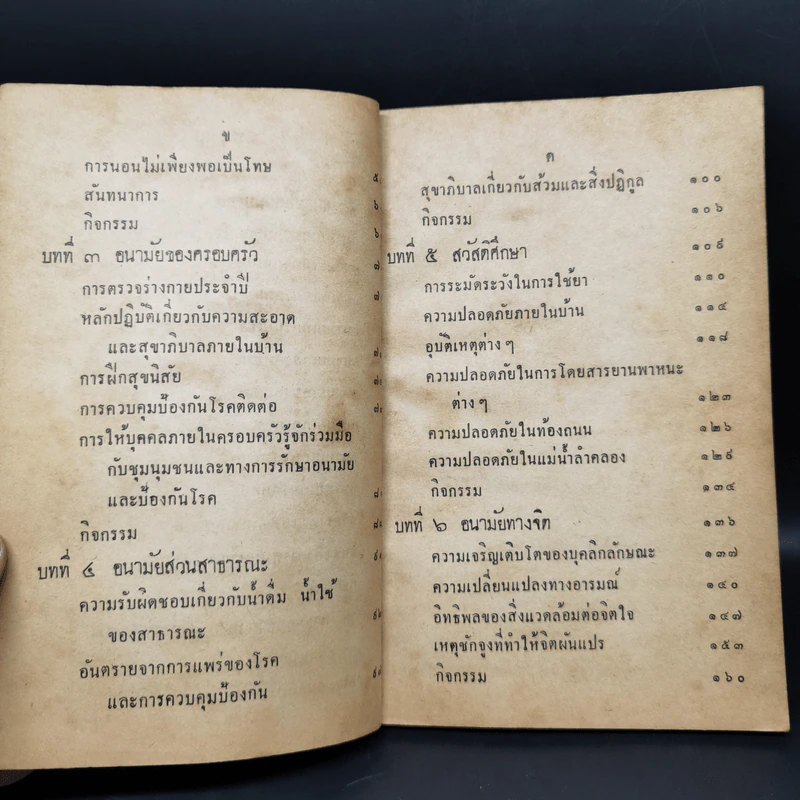 ข
การนอนไม่เพียงพอเป็นโทษ
สันทนาการ
กิจกรรม
บทที่ ๓ อนามัยของครอบครัว
การตรวจร่างกายประจำปี
หลักปฏิบัติเกี่ยวกับความสะอาด
และสุขาภิบาลภายในบ้าน
การฝึกสุขนิสัย
การควบคุมป้องกันโรคติดต่อ
การให้บุคคลภายในครอบครัวรู้จักร่วมมือ
กับชุมนุมชนและทางการรักษาอนามัย
และป้องกันโรค
กิจกรรม
บทที่ ๔ อนามัยส่วนสาธารณะ
ความรับผิดชอบเกี่ยวกับน้ำดื่ม น้ำใช้
ของสาธารณะ
อันตรายจากการแพร่ของโรค
และการควบคุมป้องกัน
ค
สุขาภิบาลเกี่ยวกับส้วมและสิ่งปฏิกูล ๑๐๐
กิจกรรม ๑๐๖
บทที่ ๕ สวัสดิศึกษา ๑๐๙
การระมัดระวังในการใช้ยา ๑๑๐
ความปลอดภัยภายในบ้าน ๑๑๔
อุบัติเหตุต่าง ๆ ๑๑๘
ความปลอดภัยในการโดยสารยานพาหนะ
ต่าง ๆ ๑๒๓
ความปลอดภัยในท้องถนน ๑๒๖
ความปลอดภัยในแม่น้ำลำคลอง ๑๒๙
กิจกรรม ๑๓๔
บทที่ ๖ อนามัยทางจิต ๑๓๖
ความเจริญเติบโตของบุคลิกลักษณะ ๑๓๗
ความเปลี่ยนแปลงทางอารมณ์ ๑๔๐
อิทธิพลของสิ่งแวดล้อมต่อจิตใจ ๑๔๗
เหตุชักจูงที่ทำให้จิตผันแปร ๑๕๓
กิจกรรม ๑๖๐